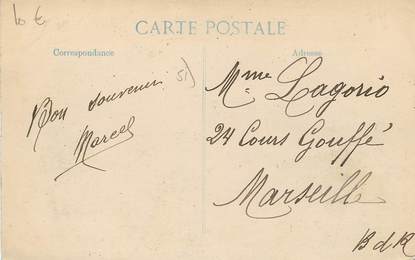 10 €
CARTE POSTALE
Correspondance
Adresse
51)
Bon souvenir
Marcel
Mme Lagorio
24 Cours Gouffé
Marseille
B d R